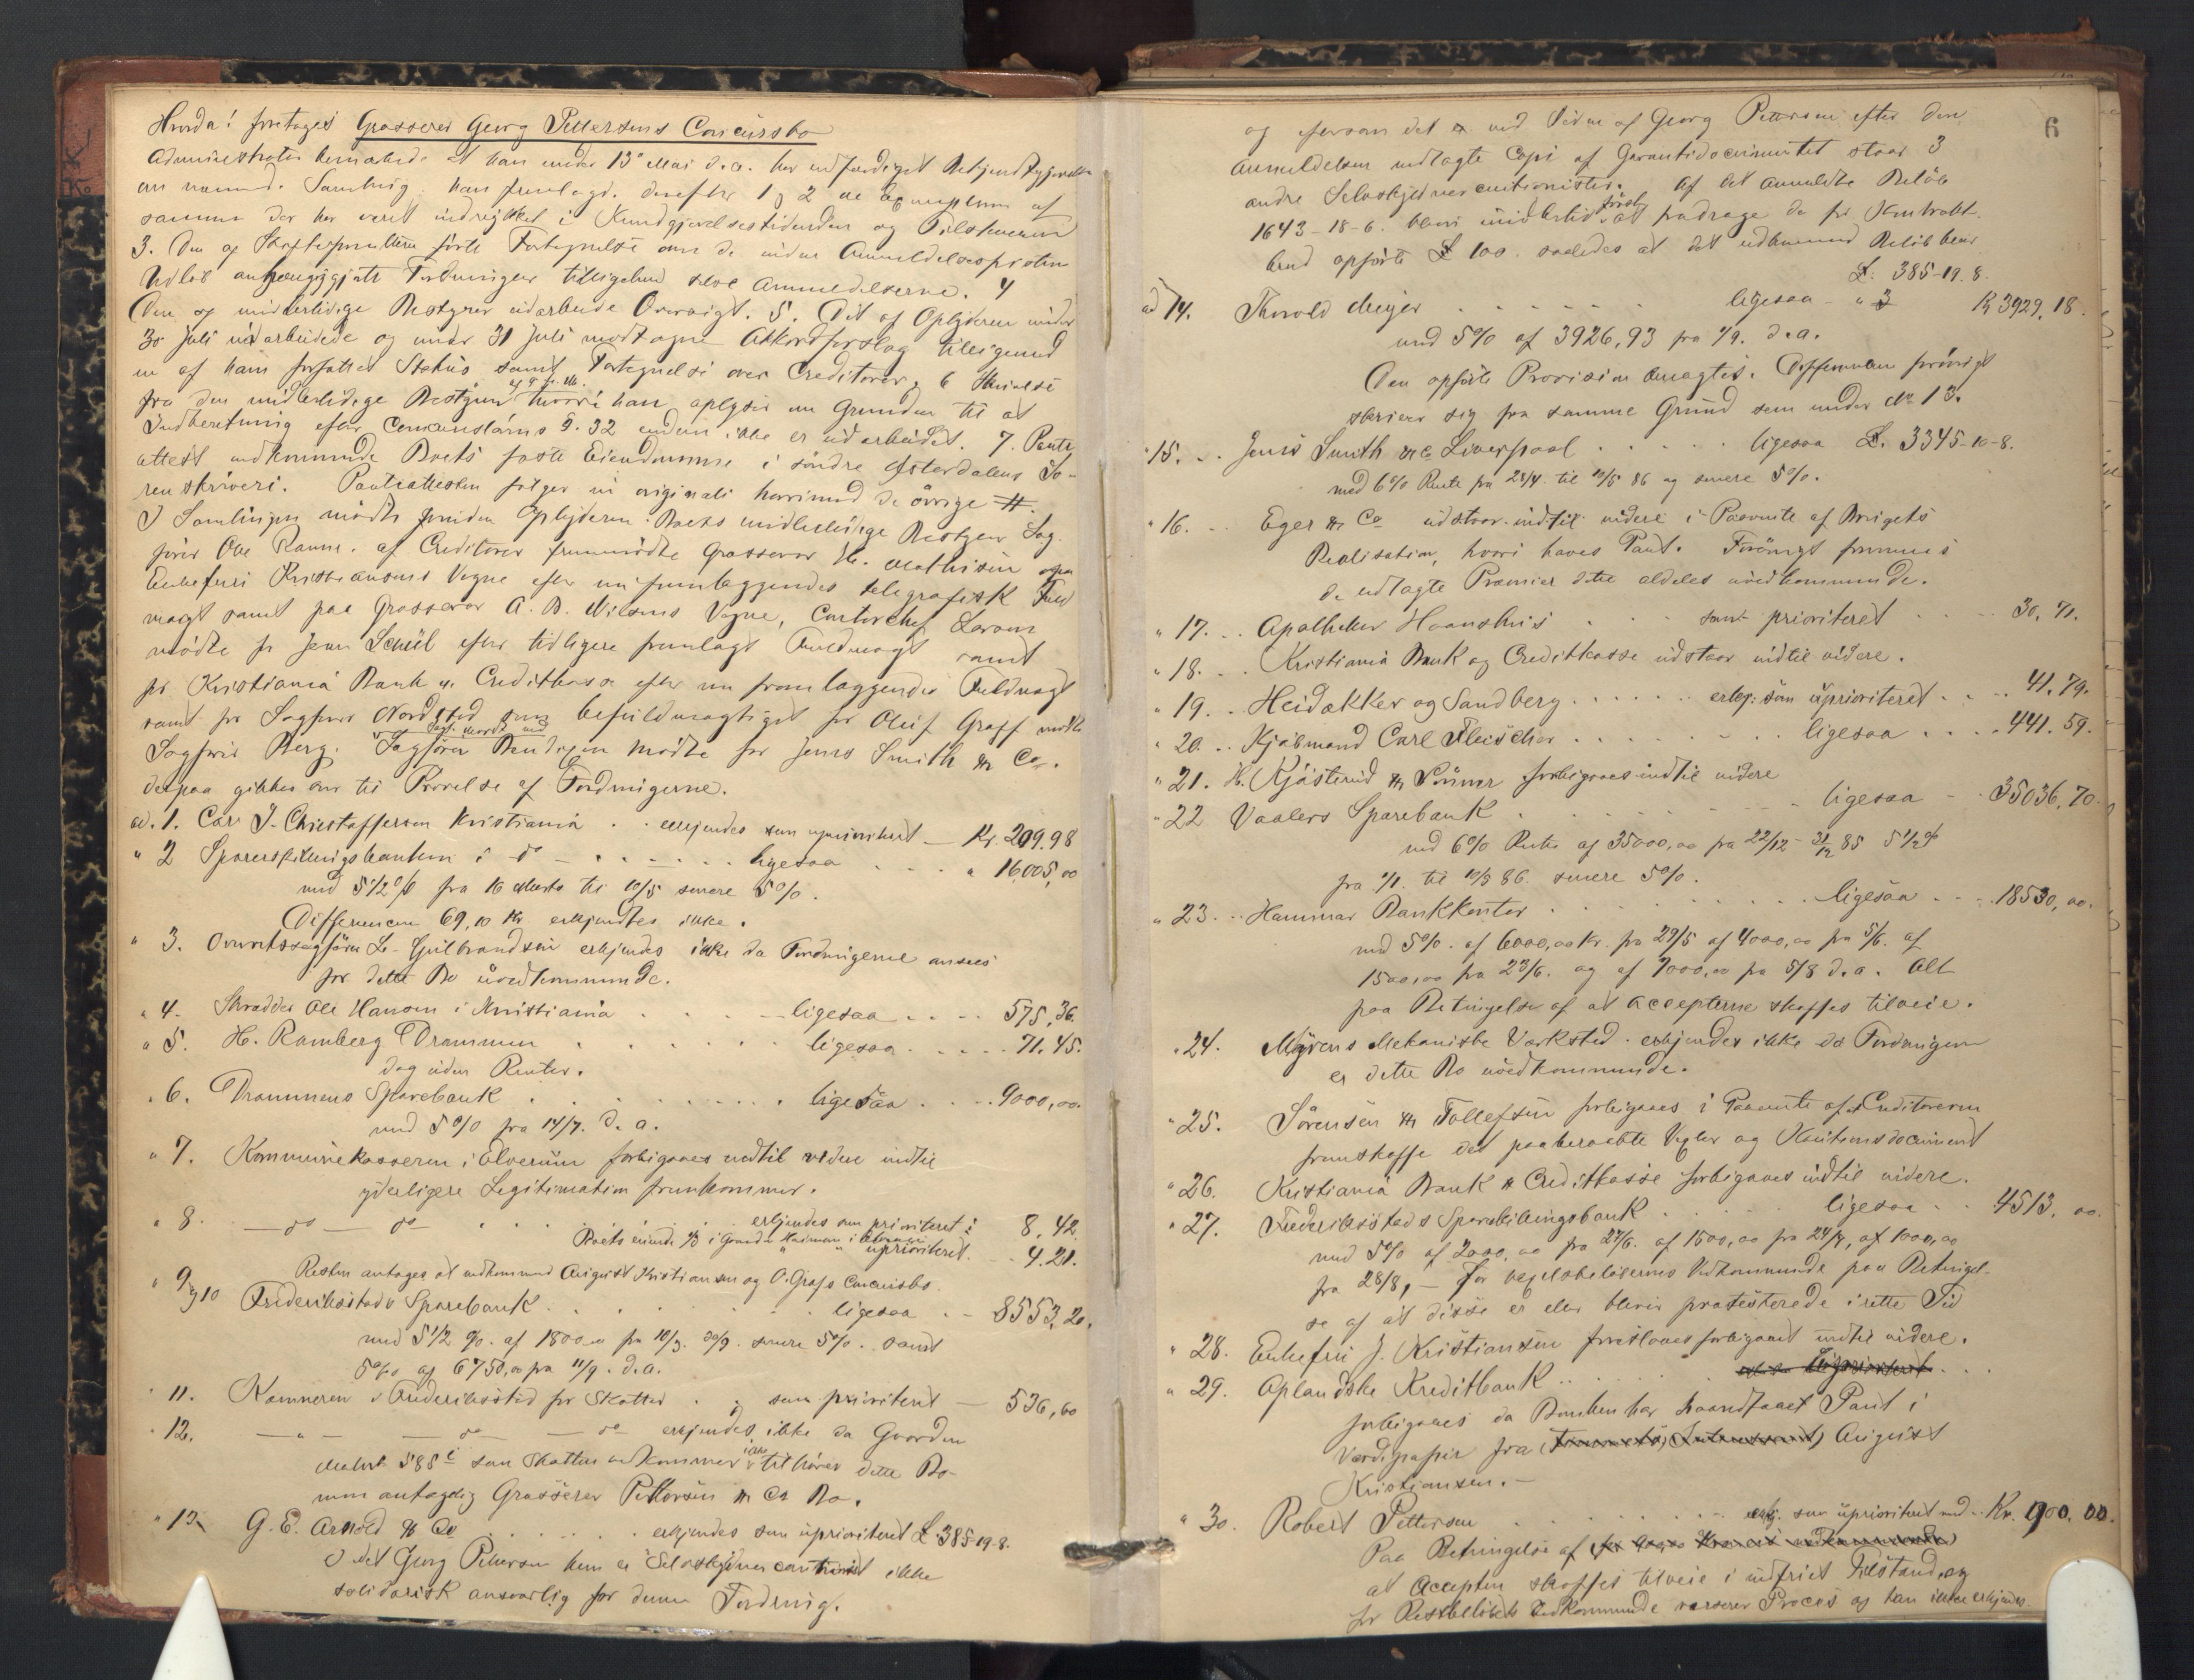 Hvorda! foretoges Grosserer Georg Pettersens Concursbo
Administrator bemærkede at han under 13de Mai d.a. har udfærdiget Bekjendtgjørelse
om næmnd. Samling; han fremlagde derefter 1 og 2 de Exemplarer af
samme der har været indrykket i Kundgjørelsestidenden og Tilskueren
3. Den af Skifteforvalteren førte Fortegnelse over de inden Anmeldelsesfristens
Udløb anhængiggjorte Fordringer tilligemed selve Anmeldelserne. 4
Den af midlertidige Bestyrer udarbeidede Oversigt. 5. Det af Opbyderen under
30 Juli udarbeidede og under 31 Juli modtagne Akkordforslag tilligemed
en af ham forfattet Status samt Fortegnelse over Creditorer, 6 Skrivelse
fra den midlertidige Bestyrer hvori han oplyser om Grunden til at
Indberetning efter Concurslovens §. 32 endnu ikke er udarbeidet. 7. Pante
attest vedkommende Boets faste Eiendomme i søndre Østerdalens So-
renskriveri. Panteattesten følger in originali hvorimod de øvrige #.
I Samlingen mødte foruden Opbyderen Boets midlertidige Bestyrer Sag
fører Ove Ramm. af Creditorer fremmødte Grosserer H. Mathisen ogsaa
Enkefru Kristiansens Vegne efter en fremlæggendes telegrafisk Fuld
magt samt paa Grosserer A. B. Nilsens Vegne, Contorchef Larsen
mødte for Jenn Schiel efter tidligere fremlagt Fuldmagt samt
for Kristiania Bank og Creditkasse efter en fremlæggendes Fuldmagt
samt for Sagfører Nordsted som befuldmægtiget for Oluf Graff mødte
Sagfører Berg. Sagfører Bendixen mødte for Jens Smith & Co.
derpaa gikkes over til Prøvelse af Fordringerne.
ad. 1. Carl J. Christoffersen Kristiania . . erkjendes som uprioriteret — Kr. 209.98
" 2 Sparerskillingsbanken i do — . . . . . . ligesaa . . . " 16,005,00
med 5 1/2 % fra 16 Marts til 10/5 senere 5 %.
Differencen 69,10 Kr. erkjendtes ikke.
" 3. Overretssagfører L. Gulbrandsen erkjendes ikke da Fordringerne ansees
for dette Bo uvedkommende.
" 4. Skrædder Ole Hansen i Kristiania . . . . ligesaa . . . . 575,36.
" 5. H. Ramberg Drammen . . . . . . ligesaa . . . . . 71.45.
dog uden Renter.
" 6. Drammens Sparebank . . . . . . . . ligesaa . . . . 9000,00.
med 5 % fra 14/7. d. a.
" 7. Kommunekassereren i Elverum forbigaaes indtil videre indtil
yderligere Legitimation fremkommer.
" 8. — do — do — . . . . erkjendes som prioriteret: 8,42.
Boets eiende 1/3 i Gaarden Haiman i Elverum " " uprioriteret. . . 4.21.
Resten antages at vedkomme August Kristiansen og O. Graffs Concursbo.
" 9 og 10 Frederiksstads Sparebank . . . . . . . . ligesaa . . - 8553,20.
med 5 1/2 %. af 1800,00 fra 10/3. 20/9. senere 5 %. . samt
5 % af 6750,00 fra 11/9. d.a.
" 11. Kæmneren i Frederiksstad for Skatter . . . som prioriteret — 536,60
" 12. — " — — do — — do — erkjendes ikke da Gaarden
Matrik 585 c som Skatten vedkommer ikke tilhører dette Bo-
men antagelig Grosserer Pettersen & Co Bo.
" 13 G. E. Arnold & Co . . . . . . . erkjendes som uprioriteret £ 385-19-8.
I det Georg Pettersen kun er Selvskyldnercautionist ikke
solidarisk ansvarlig for denne Fordring.
6
og eftersom det er ved Siden af Georg Pettersen efter den
Anmeldelsen vedlagte Copi af Garantidocumentet staar 3
andre Selvskyldnercautionister. Af det anmeldte Beløb
1643-18-6. bliver imidlertid først at fradrage de for Kontrakt-
brud opførte £ 100. saaledes at det udkommende Beløb bliver
£. 385-19.8.
ad 14. Thorvald Meyer . . . . . . . ligesaa - " 3 Kr 3929.18.
med 5 % af 3926,93 fra 1/9. d.a.
Den opførte Provision benægtes. Differencen forøvrigt
skriver sig fra samme Grund som under No 13.
" 15. . . Jens Smith & Co Liverpool . . . . . ligesaa £. 3345-10-8.
med 6 % Rente fra 28/4. til 10/5 86 og senere 5 %.
" 16. . . Eger & Co udstaar indtil videre i Paavente af Brigets
Realisation, hvori haves Pant. Forøvrigt formenes
de udlagte Præmier dette aldeles uvedkommende.
" 17. . . Apotheker Haanshuus . . . som prioriteret . . . . 30,71.
" 18. . . Kristiania Bank og Creditkasse udstaar indtil videre.
" 19. . Heidækker og Sandberg . . . . . . erkj: som uprioriteret . . . 41.79.
" 20. . . Kjøbmand Carl Fleischer . . . . . . . . ligesaa . . . . 441.59.
" 21. H. Kjøsterud & Sønner forbigaaes indtil videre
" 22 Vaalers Sparebank . . . . . . . . ligesaa - . 35036,70.
med 6 % Rente af 35000,00 fra 22/12 - 31/12 85 5 1/2 %
fra 1/1. til 10/3 86. senere 5 %.
" 23. . . Hammar Bankkontor . . . . . . . . . ligesaa . . . 18530,00.
med 5 %. af 6000,00 Kr. fra 29/5 af 4000,00 fra 5/6. af
1500,00 fra 23/6. og af 7000,00 fra 5/8 d.a. Alt
paa Betingelse af at Accepterne skaffes tilveie.
" 24. Myrens Mekaniske Værksted. erkjendes ikke da Fordringen
er dette Bo uvedkommende.
" 25. Sørensen & Tollefsen forbigaaes i Paavente af at Creditorerne
fremskaffe det paaberaabte Vexler og Kautionsdocument
" 26. Kristiania Bank & Creditkasse forbigaaes indtil videre.
" 27. Frederiksstads Sparskillingsbank . . . . . ligesaa . . 4513,00.
med 5 % af 2000,00 fra 27/6. af 1500,00 fra 24/7, af 1000,00
fra 28/8, — for Vexelobeløbernes Vedkommende paa Betingel-
se af at disse er eller bliver protesterede i rette Tid
" 28. Enkefru J. Kristiansen foreslaaes forbigaaet indtil videre.
" 29. Oplandske Kreditbank . . . . . .
forbigaaes da Banken har haandfaaet Pant i
Værdipapir fra August
Kristiansen. —
" 30. Robert Pettersen . . . . . . . . . erkj. som uprioriteret med . . Kr. 900.00.
Paa Betingelse af
at Accepten skaffes tilveie i indfriet Tilstand, og
for Restbeløbets Vedkommende verserer Proces og kan ikke erkjendes.